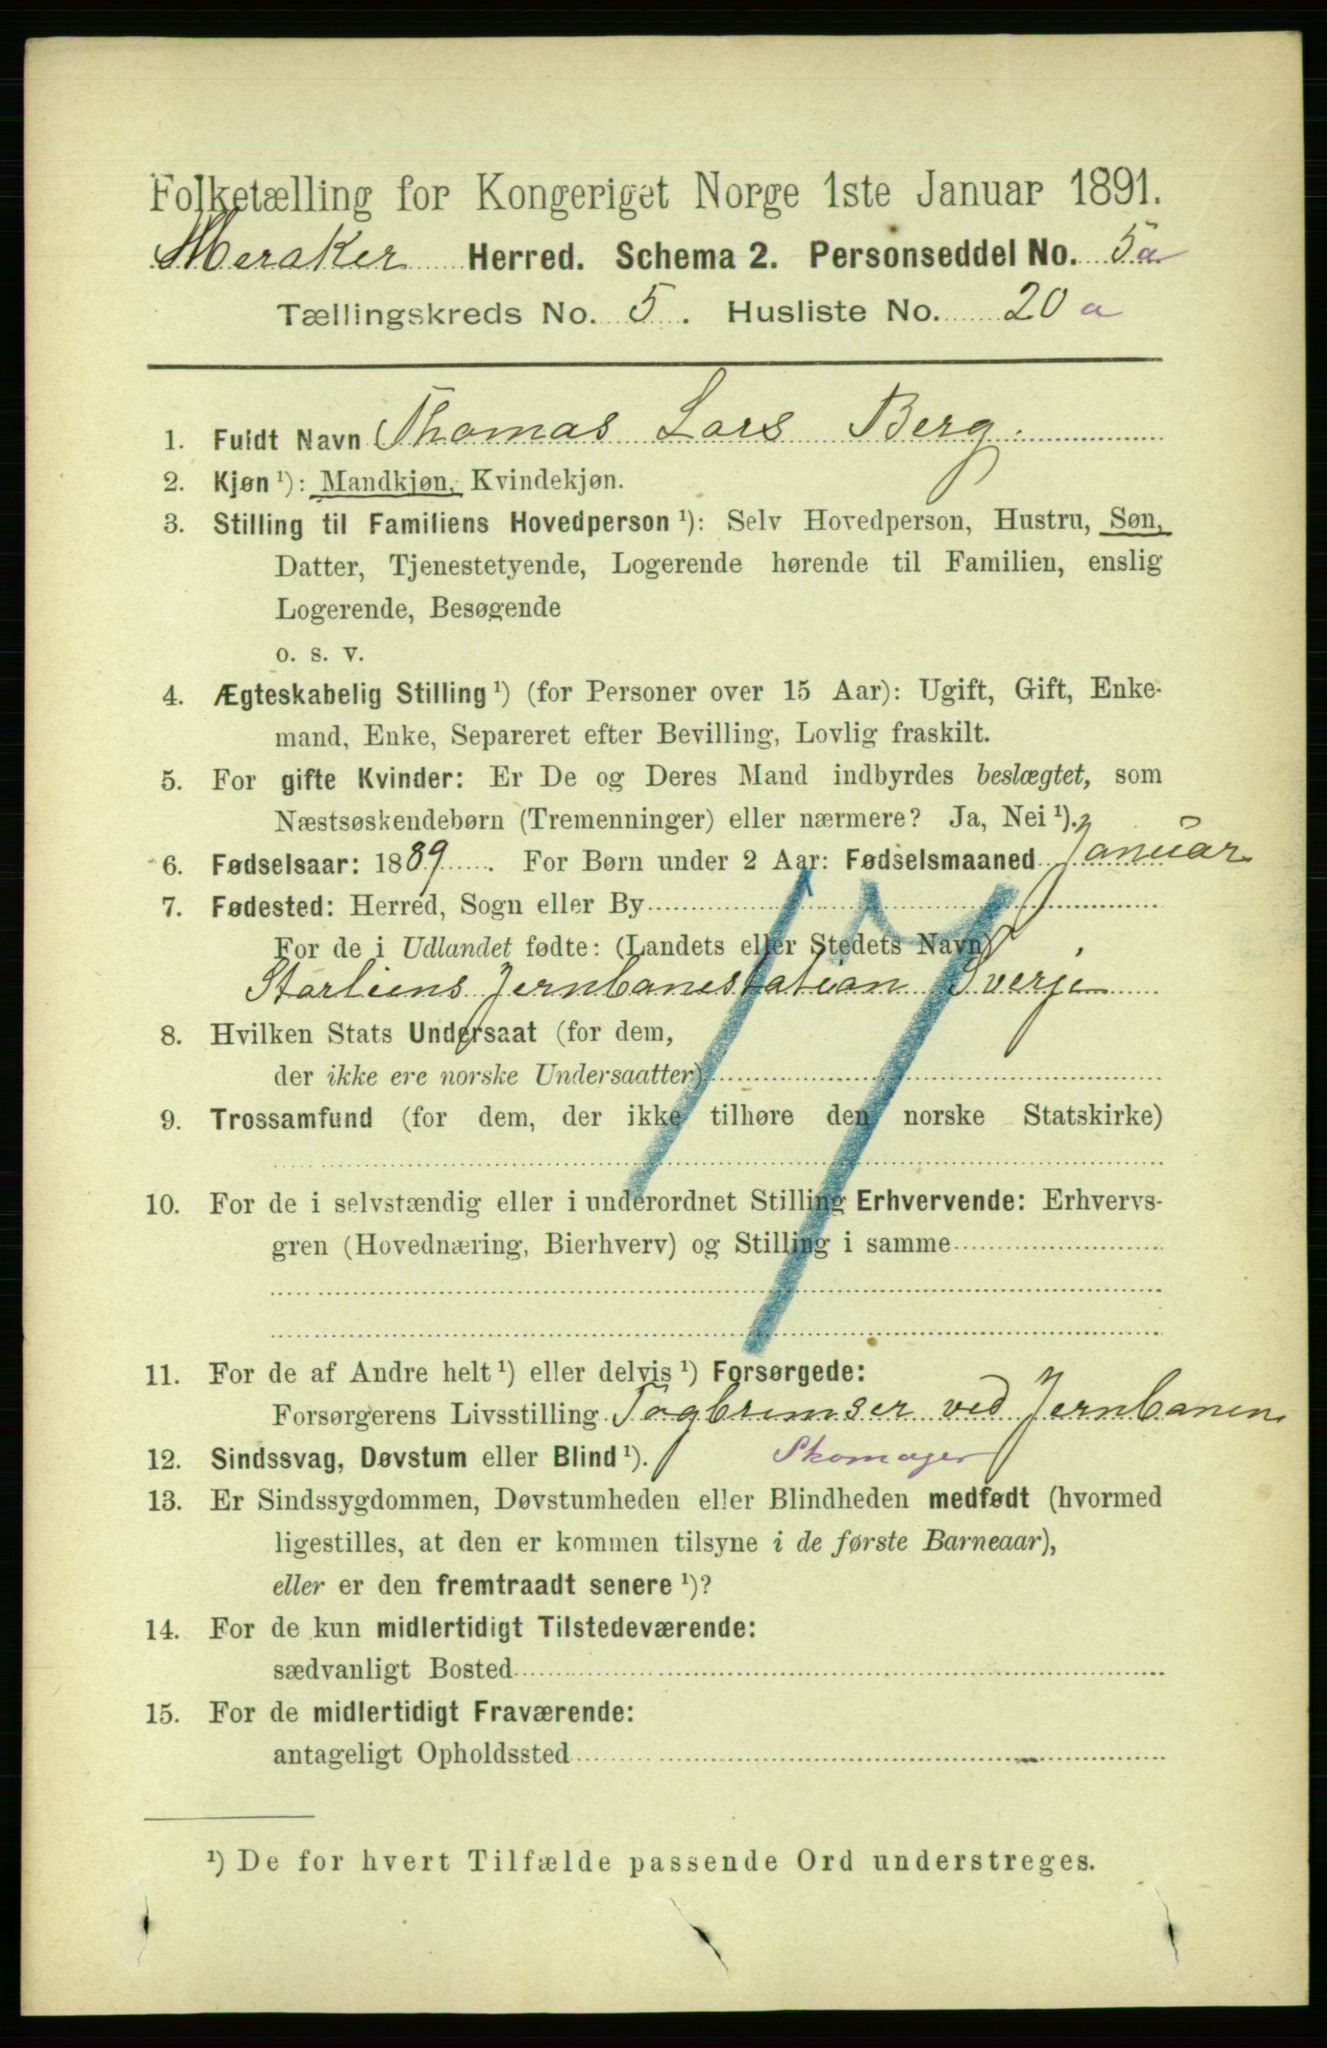 Folketælling for Kongeriget Norge 1ste Januar 1891.
Meraker Herred. Schema 2. Personseddel No. 5a
Tællingskreds No. 5. Husliste No. 20 a
1. Fuldt Navn Thomas Lars Berg.
2. Kjøn ¹): Mandkjøn, Kvindekjøn.
3. Stilling til Familiens Hovedperson ¹): Selv Hovedperson, Hustru, Søn,
Datter, Tjenestetyende, Logerende hørende til Familien, enslig
Logerende, Besøgende
o. s. v.
4. Ægteskabelig Stilling ¹) (for Personer over 15 Aar): Ugift, Gift, Enke-
mand, Enke, Separeret efter Bevilling, Lovlig fraskilt.
5. For gifte Kvinder: Er De og Deres Mand indbyrdes beslægtet, som
Næstsøskendebørn (Tremenninger) eller nærmere? Ja, Nei ¹).
6. Fødselsaar: 1889. For Børn under 2 Aar: Fødselsmaaned Januar
7. Fødested: Herred, Sogn eller By
For de i Udlandet fødte: (Landets eller Stedets Navn)
Storliens Jernbanestation Sverje
8. Hvilken Stats Undersaat (for dem,
der ikke ere norske Undersaatter)
9. Trossamfund (for dem, der ikke tilhøre den norske Statskirke)
10. For de i selvstændig eller i underordnet Stilling Erhvervende: Erhvervs-
gren (Hovednæring, Bierhverv) og Stilling i samme
11. For de af Andre helt ¹) eller delvis ¹) Forsørgede:
Forsørgerens Livsstilling Togbremser ved Jernbanen
12. Sindssvag, Døvstum eller Blind ¹). Skomager
13. Er Sindssygdommen, Døvstumheden eller Blindheden medfødt (hvormed
ligestilles, at den er kommen tilsyne i de første Barneaar),
eller er den fremtraadt senere ¹)?
14. For de kun midlertidigt Tilstedeværende:
sædvanligt Bosted
15. For de midlertidigt Fraværende:
antageligt Opholdssted
¹) De for hvert Tilfælde passende Ord understreges.